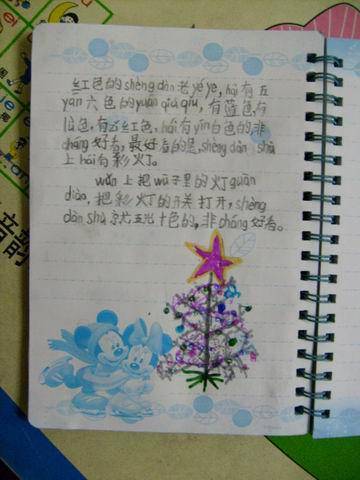 红色的shèng dàn老yé ye，hái有五
yán六色的yuán qiú qiú，有蓝色，有
色，有红色，hái有yín白色的，非
cháng好看，最好看的是，shèng dàn shù
上hái有彩灯。
wǎn上把wū子里的灯guān
diào，把彩灯的开关打开，shèng
dàn shù就五光十色的，非cháng好看。